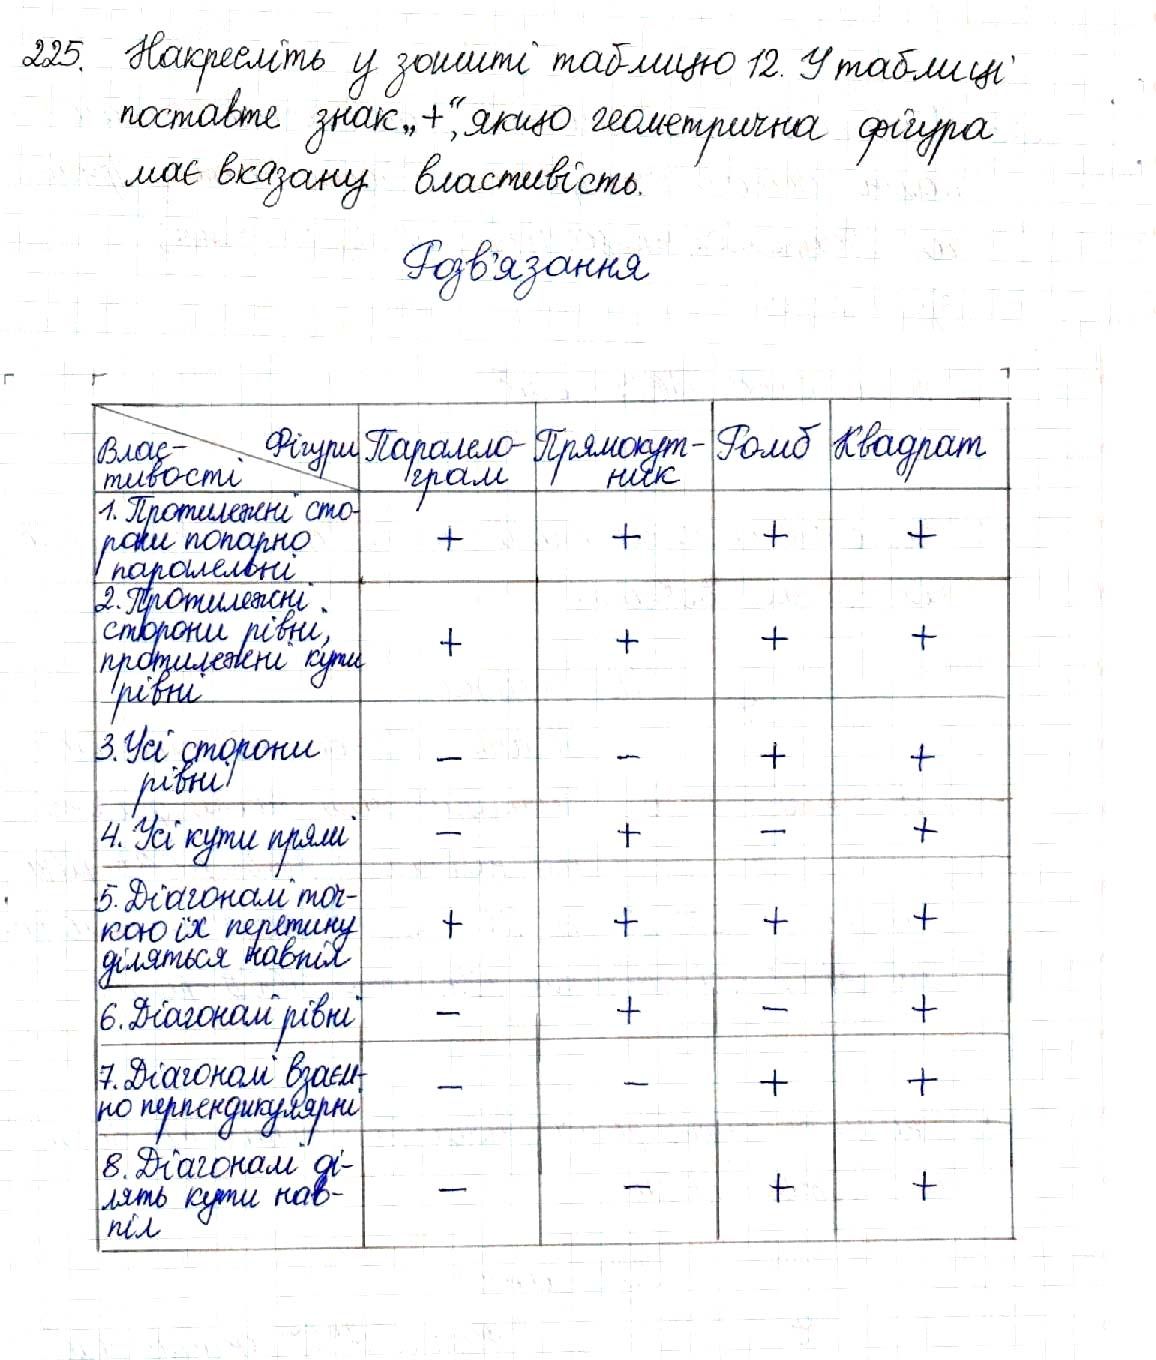 225. Накресліть у зошиті таблицю 12. У таблиці
поставте знак „+“, якщо геометрична фігура
має вказану властивість.
Розв'язання
Влас-
тивості
Фігури
Паралело-
грам
Прямокут-
ник
Ромб
Квадрат
1. Протилежні сто-
рони попарно
паралельні
+ + + +
2. Протилежні
сторони рівні,
протилежні кути
рівні
+ + + +
3. Усі сторони
рівні
− − + +
4. Усі кути прямі
− + − +
5. Діагоналі точ-
кою їх перетину
діляться навпіл
+ + + +
6. Діагоналі рівні
− + − +
7. Діагоналі взаєм-
но перпендикулярні
− − + +
8. Діагоналі ді-
лять кути нав-
піл
− − + +